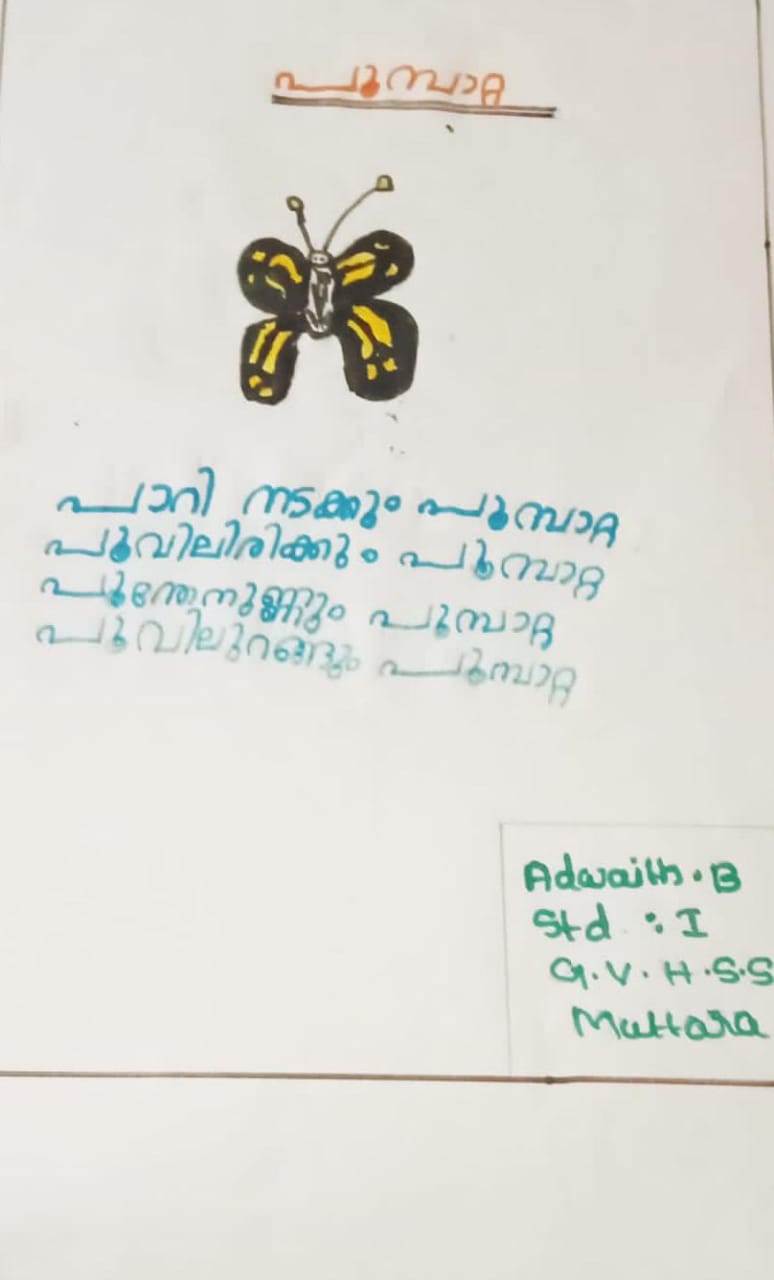 പൂമ്പാറ്റ
പാറി നടക്കും പൂമ്പാറ്റ
പൂവിലിരിക്കും പൂമ്പാറ്റ
പൂന്തേനുണ്ണും പൂമ്പാറ്റ
പൂവിലുറങ്ങും പൂമ്പാറ്റ
Adwaith.B
Std : I
G.V.H.S.S
Muttara